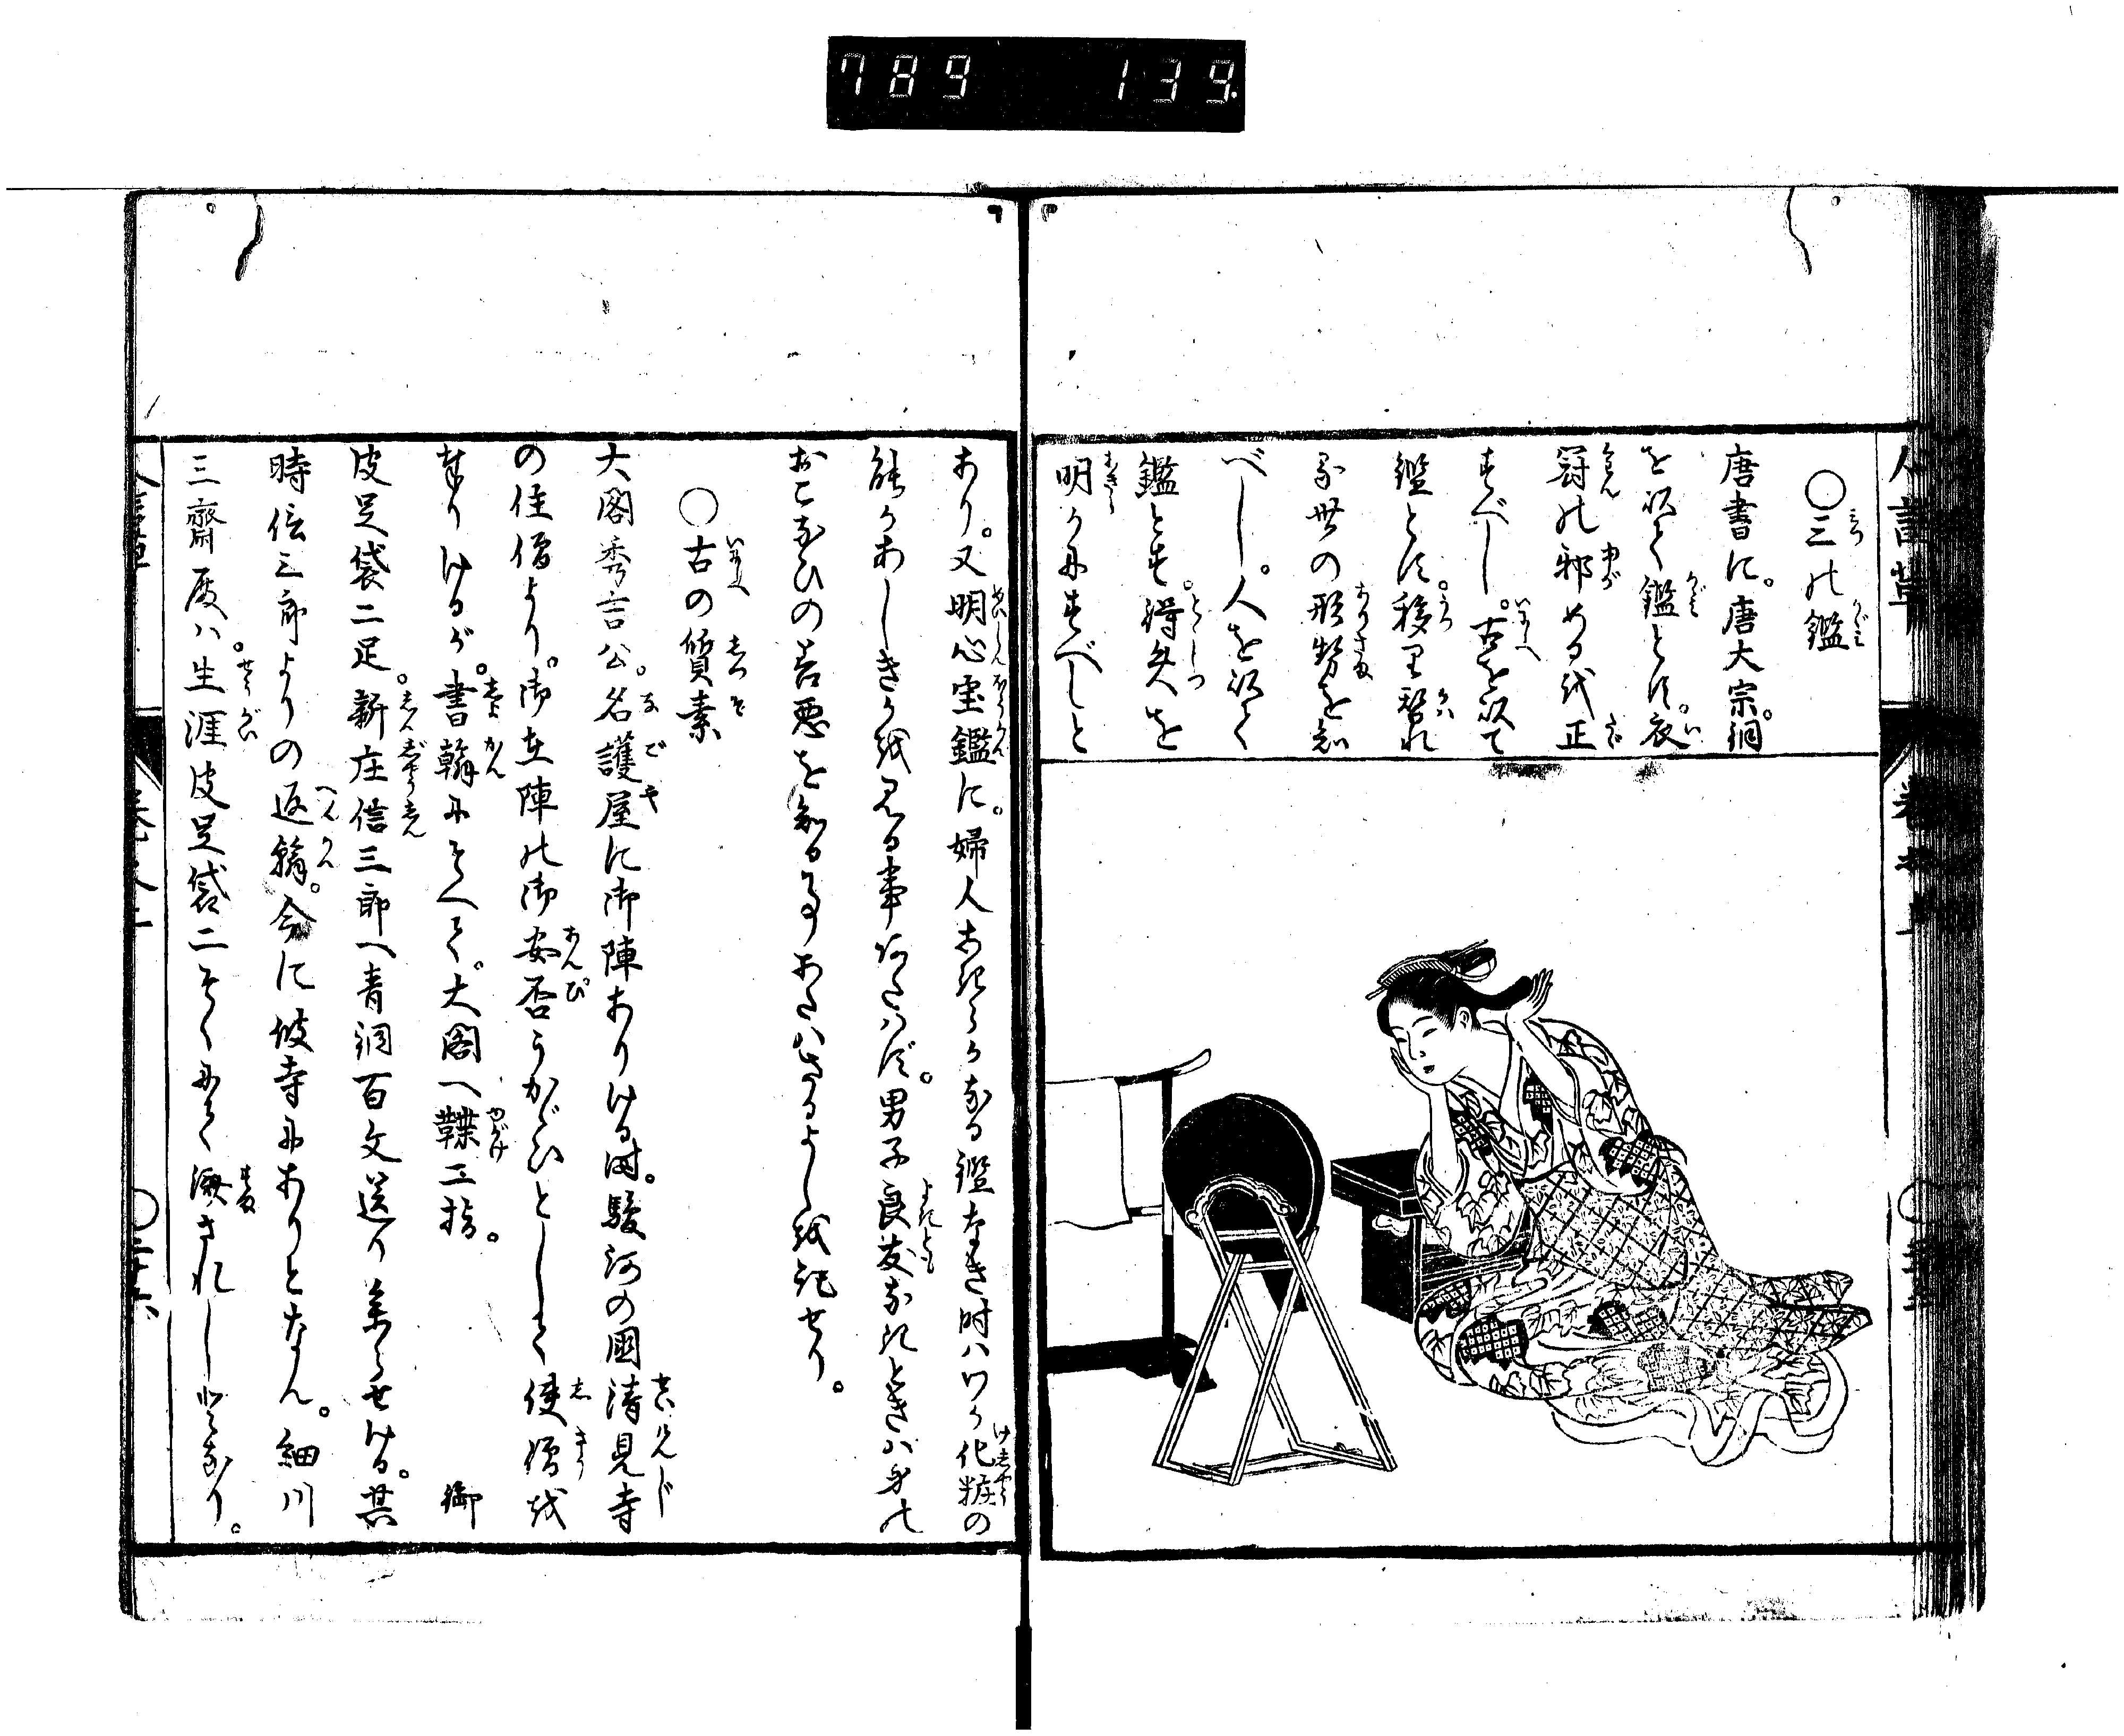 789 139
○三の鑑
唐書に。唐大宗。銅
を以て鑑とす。衣
冠の邪める越正
すべし。古を以て
鑑とす。移り替れ
る世の形勢を知
べし。人を以て
鑑とす。得失を
明らかにすべしと
あり。又明心宝鑑に。婦人あきらかなる鑑なき時ハわが化粧の
能かあしきか越見る事あたハず。男子良友なきときハ身の
おこなひの善悪を知る事あたハざるよし越記せり。
○古の質素
大閤秀吉公。名護屋に御陣ありける時。駿河の國清見寺
の住僧より。御在陣の御安否うかがひとして使僧越
奉りけるが。書翰にそへて。大閤へ鞢二指。 御
皮足袋二足。新庄信三郎へ青銅百文送り参らせける。其
時信三郎よりの返翰。今に彼寺にありとなん。細川
三齋殿ハ。生涯皮足袋二そくにて済されしとなり。